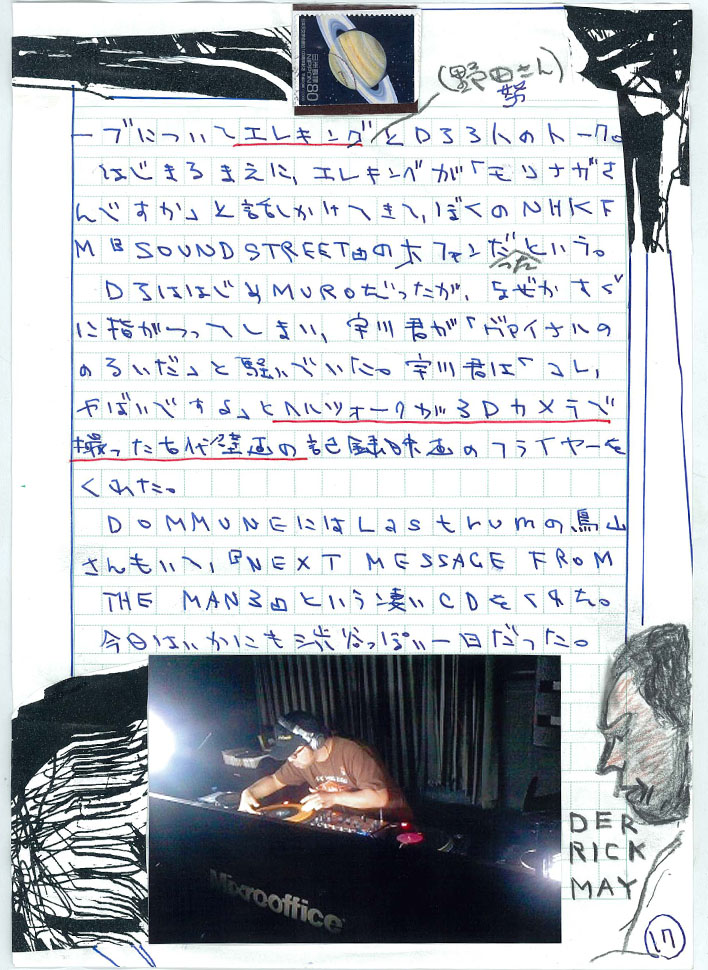 日本郵便
NIPPON
80
(野田さん)
努
ーブについてエレキングとD33人のトーク。
はじまるまえに、エレキングが「モリナガさ
んですか」と話しかけてきて、ぼくのNHKF
M『SOUNDSTREET』の大ファンだという。
った
DJははじめMUROだったが、なぜかすぐ
に指がつってしまい、宇川君が「ヴァイナルの
のろいだ」と騒いでいた。宇川君は「コレ、
やばいですよ」とヘルツォークが3Dカメラで
撮った古代壁画の記録映画のフライヤーを
くれた。
DOMMUNEにはLastrumの鳥山
さんもいて、『NEXT MESSAGE FROM
THE MAN3』という凄いCDをくれた。
今日はいかにも渋谷っぽい一日だった。
Mixrooffice
DER
RICK
MAY
17